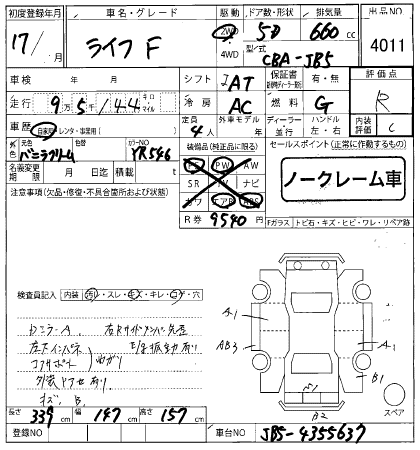 初度登録年月 車名・グレード 駆動 ドア数・形状 排気量 出品NO
17/ 月 ライフ F 2WD 4WD 5D 660 cc 4011
型/式 CBA-JB5
車検 年 月 シフト IAT 保証書 有・無 評価点
走行 9万5千144 キロ マイル 冷房 AC 燃料 G R
車歴 自家用・レンタ・事業用( ) 定員 4人 ディーラー 並行 ハンドル 左・右 内装評価 C
色 元色 バニラクリーム カラーNO YR546 装備品(純正品に限る) セールスポイント(正常に作動するもの)
名義変更期限 月 日迄 積載 t PS PW AW ノークレーム車
注意事項(欠品・修復・不具合箇所および状態) SR TV ナビ
カワ エアB ABS
R券 9540円 Fガラス トビ石・キズ・ヒビ・ワレ・リペア跡
検査員記入 内装 汚レ・スレ・キズ・キレ・コゲ・穴
Dミラー A 右Rサイドメンバー
左Fインパネ
コアサポート 曲がり
外装 有り
キズ、B、
A1
AB3
A1
B1
B2
スペア
長さ 339 cm 幅 147 cm 高さ 157 cm
登録NO 車台NO JB5-4355637